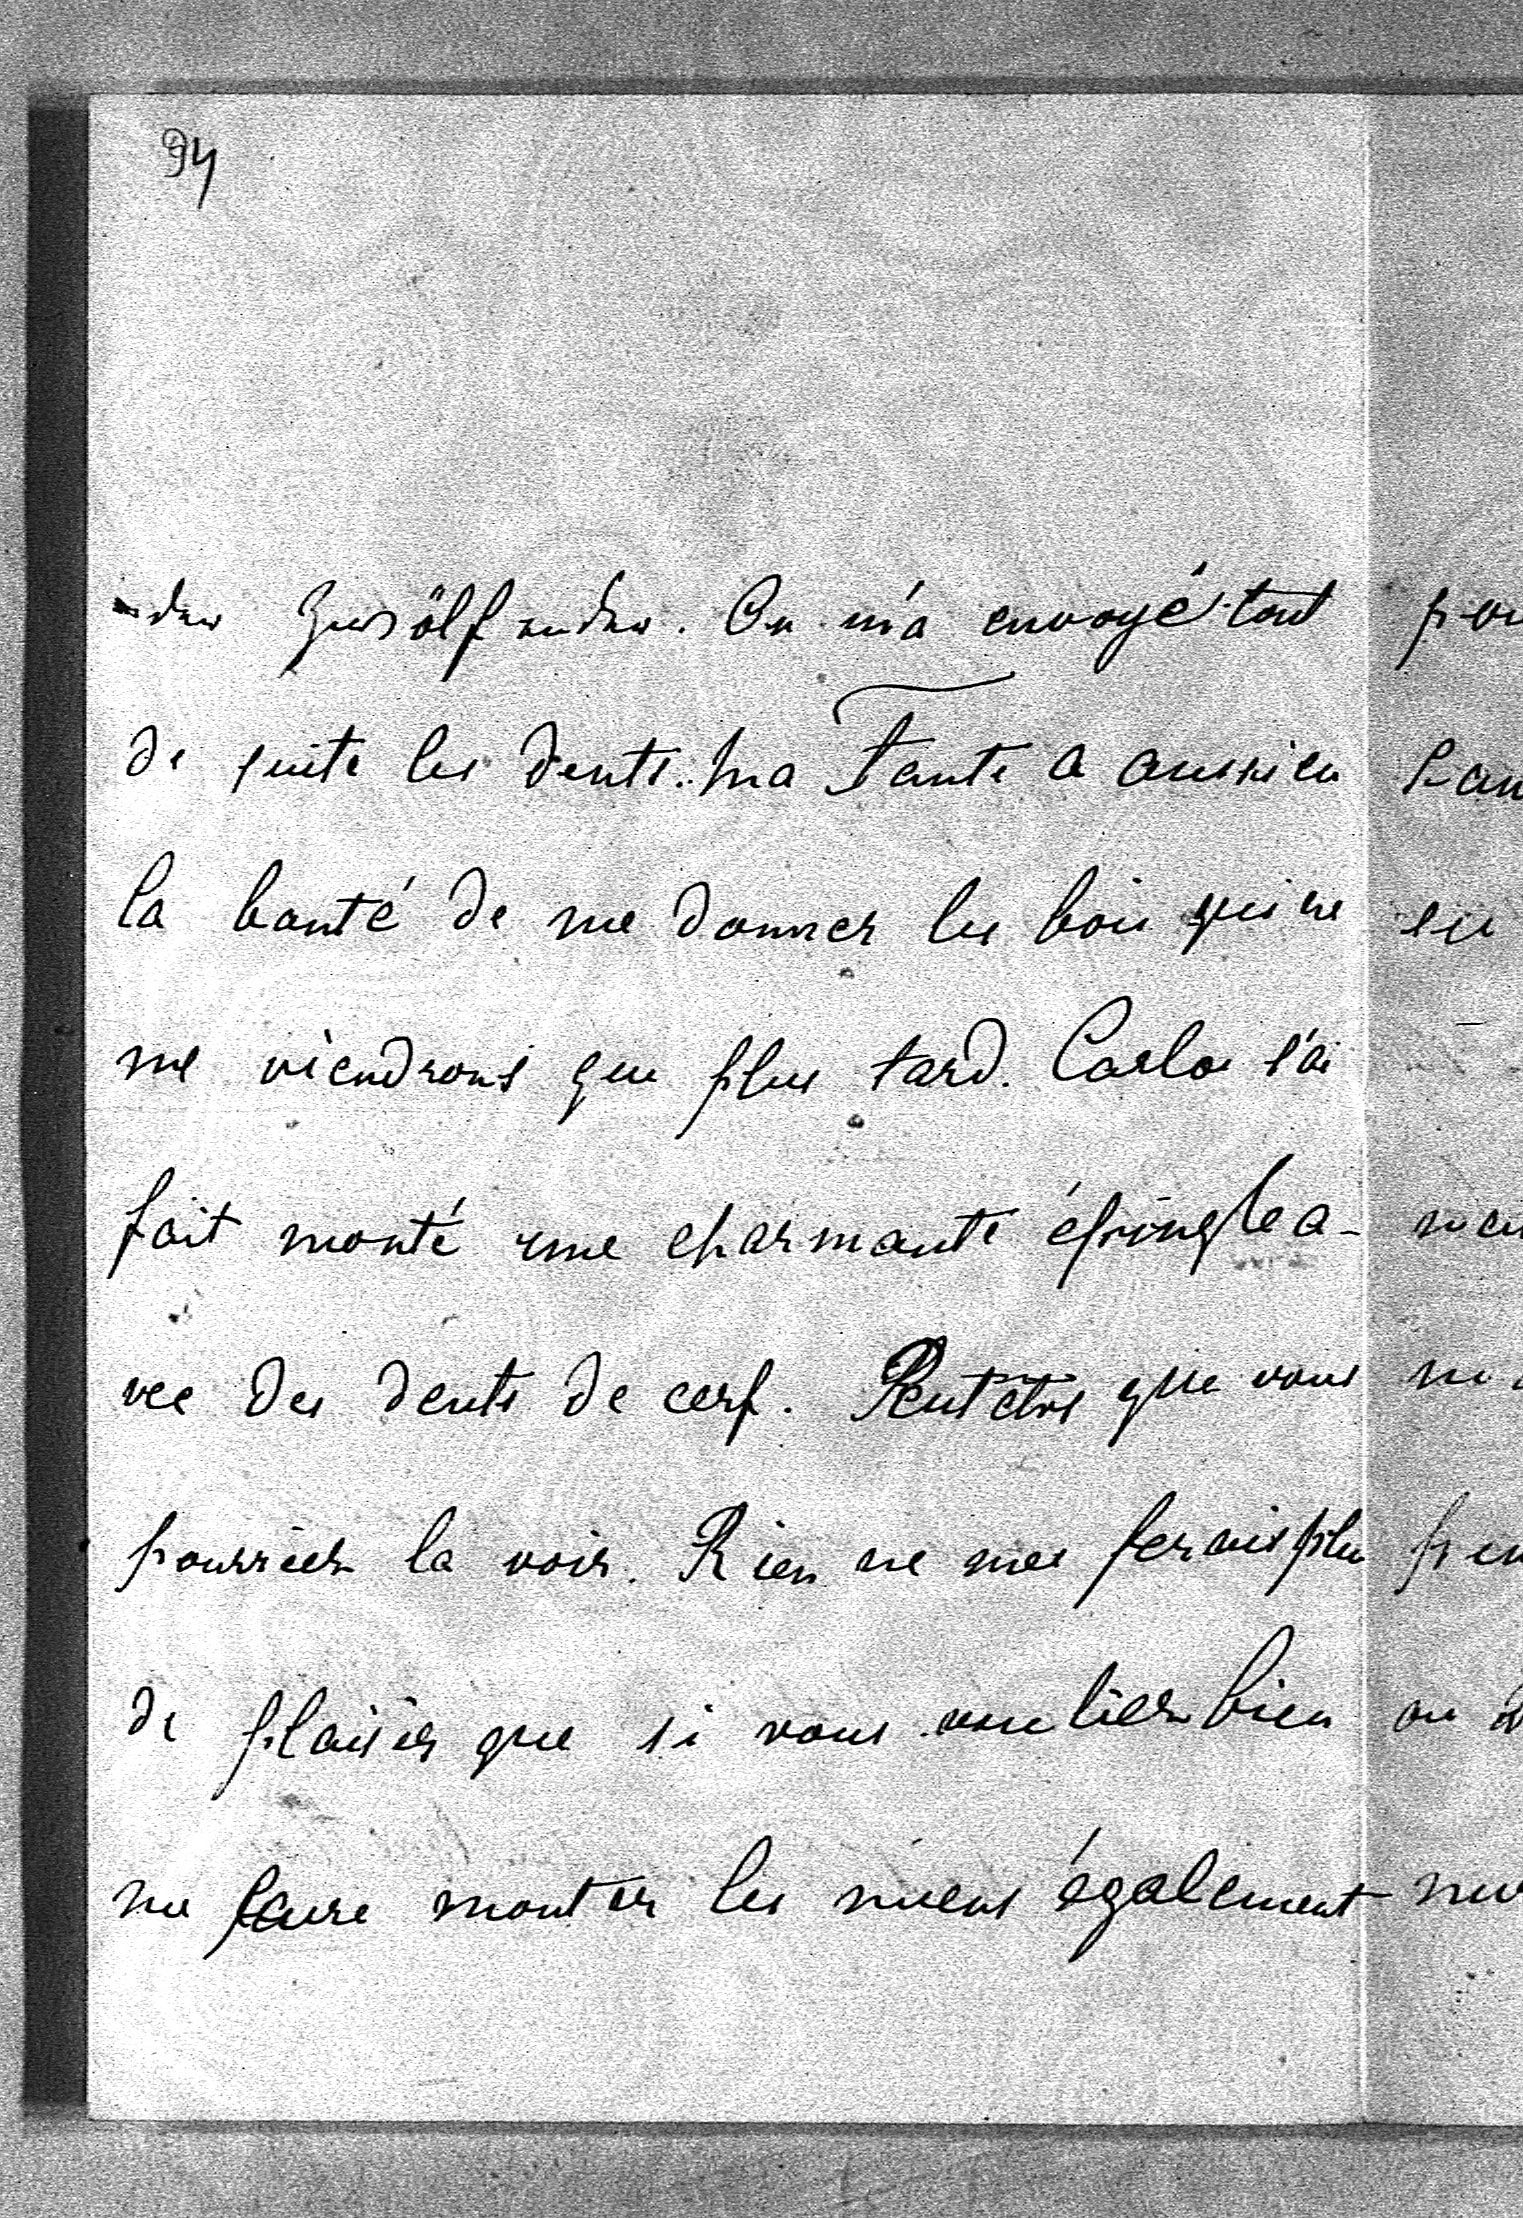 94
ender Zwölfender. On m'a envoyé tout
de suite les dents. Ma Tante a aussi eu
la bonté de me donner les bois qui ne
me viendrons que plus tard. Carlos s'ai
fait monté une charmante épingle a-
vec des dents de cerf. Peutêtre que vous
pourriez la voir. Rien ne me ferais plus
de plaisir que si vous vouliez bien
me faire monter les miens également